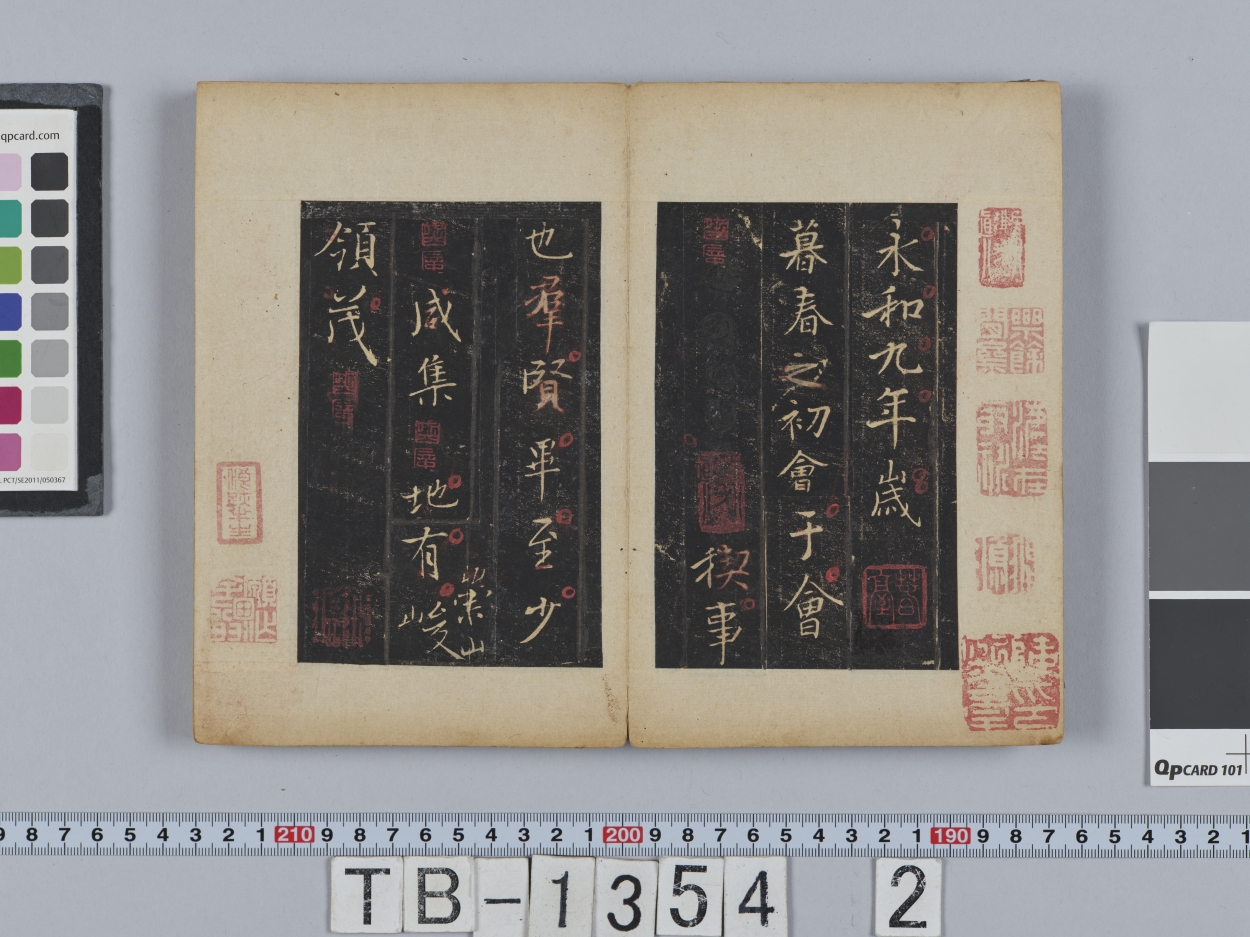 永和九年歳
暮春之初會于會
稧事
也羣賢畢至少
咸集地有崇山峻
領茂
qpcard.com
PCT/SE2011/050367
QPCARD 101
9 8 7 6 5 4 3 2 1 210 9 8 7 6 5 4 3 2 1 200 9 8 7 6 5 4 3 2 1 190 9 8 7 6 5 4 3 2 1
TB-1354 2